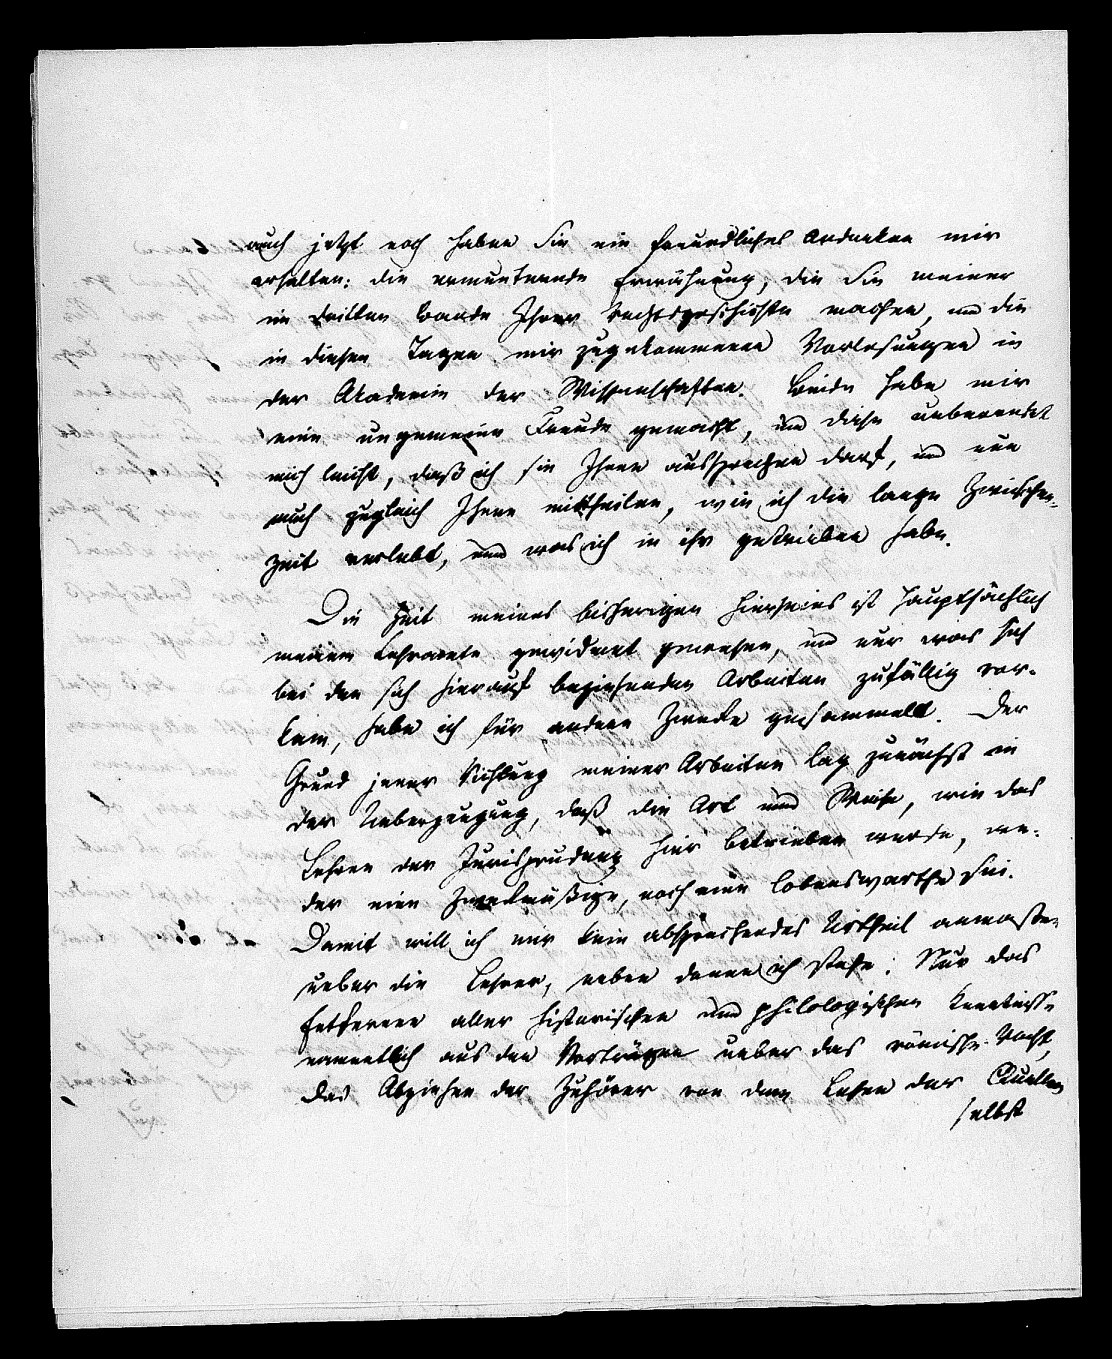 auch jetzt noch haben Sie ein freundliches Andenken mir
erhalten: die ermunternde Erwähnung, die Sie meiner
im dritten Bande Ihrer Rechtsgeschichte machen, und die
in diesen Tagen mir zugekommenen Vorlesungen in
der Akademie der Wissenschaften. Beide habe mir
eine ungemeine Freude gemacht, und diese ueberredet
mich leicht, daß ich sie Ihnen aussprechen darf, und nun
auch zugleich Ihnen mittheilen, wie ich die lange Zwischen-
zeit verlebt, und was ich in ihr getrieben habe.
Die Zeit meines bisherigen Hierseins ist hauptsächlich
meinem Lehramte gewidmet gewesen, und nur was sich
bei den sich hierauf beziehenden Arbeiten zufällig vor-
kam, habe ich für andere Zwecke gesammelt. Der
Grund jener Richtung meiner Arbeiten lag zunächst in
der Ueberzeugung, daß die Art und Weise, wie das
Lehren der Jurisprudenz hier betrieben werde, we-
der eine zweckmäßige, noch eine lobenswerthe sei.
Damit will ich mir kein absprechendes Urtheil anmaßen
ueber die Lehrer, neben denen ich stehe: Nur das
Entfernen aller historischen und philologischen Kenntnisse
namentlich aus den Vorträgen ueber das römische Recht,
das Abziehen der Zuhörer von dem Lesen der Quellen
selbst